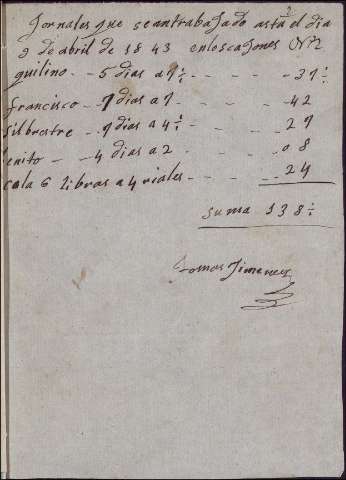 Jornales que se antrabajado astá el dia
9 de abril de 1843 en los cagones
quilino - 5 dias a 7½ - - - - 37½
francisco - 7 dias a - - - - 42
silbestre - dias a 4½ - - - 29
enito - - 4 dias a 2 - - - - 08
cola 6 libras a 4 riales - - - 24
suma 138½
tomas Jimenez